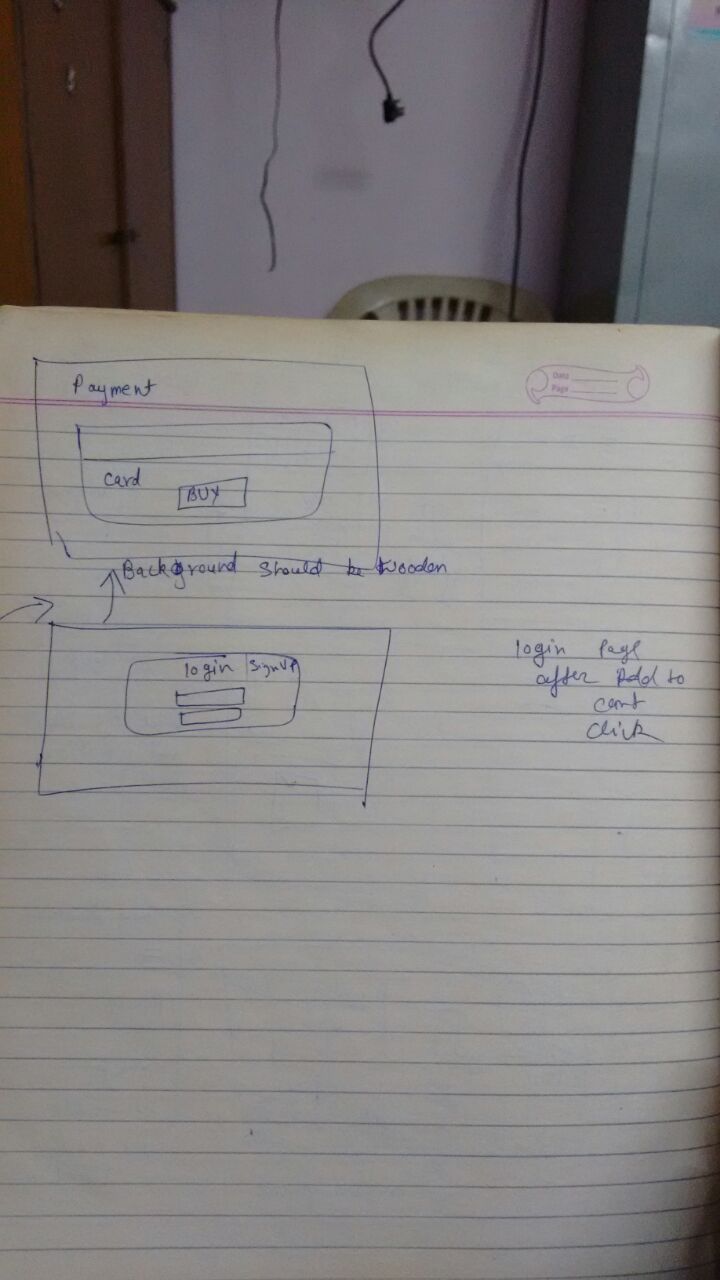 Date
Page
Payment
Card
BUY
Background should be wooden
login SignUP
login Page
after Add to
cart
click